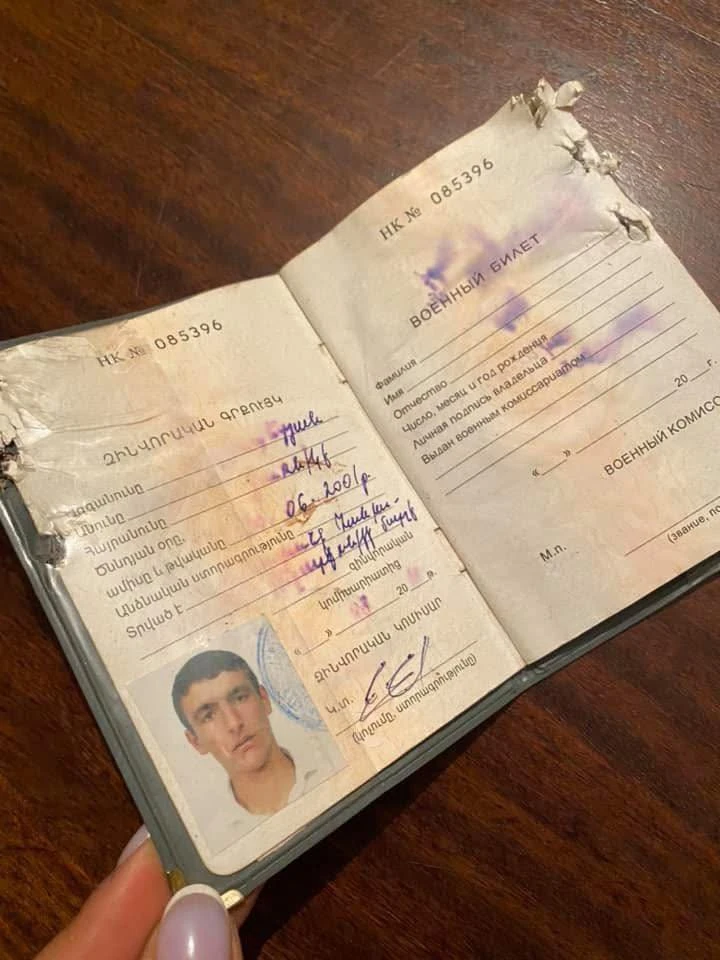 НК № 085396
ԶԻՆՎՈՐԱԿԱՆ ԳՐՔՈՒՅԿ
Ազգանունը
Անունը
Հայրանունը
Ծննդյան օրը,
ամիսը և թվականը 06. 2001թ.
Անձնական ստորագրությունը
Տրված է
զինվորական
կոմիսարիատից
« » 20 թ.
ԶԻՆՎՈՐԱԿԱՆ ԿՈՄԻՍԱՐ
Կ.տ.
(կոչումը, ստորագրությունը)
НК № 085396
ВОЕННЫЙ БИЛЕТ
Фамилия
Имя
Отчество
Число, месяц и год рождения
Личная подпись владельца
Выдан военным комиссариатом
« » 20 г.
ВОЕННЫЙ КОМИСС
М.п.
(звание, по